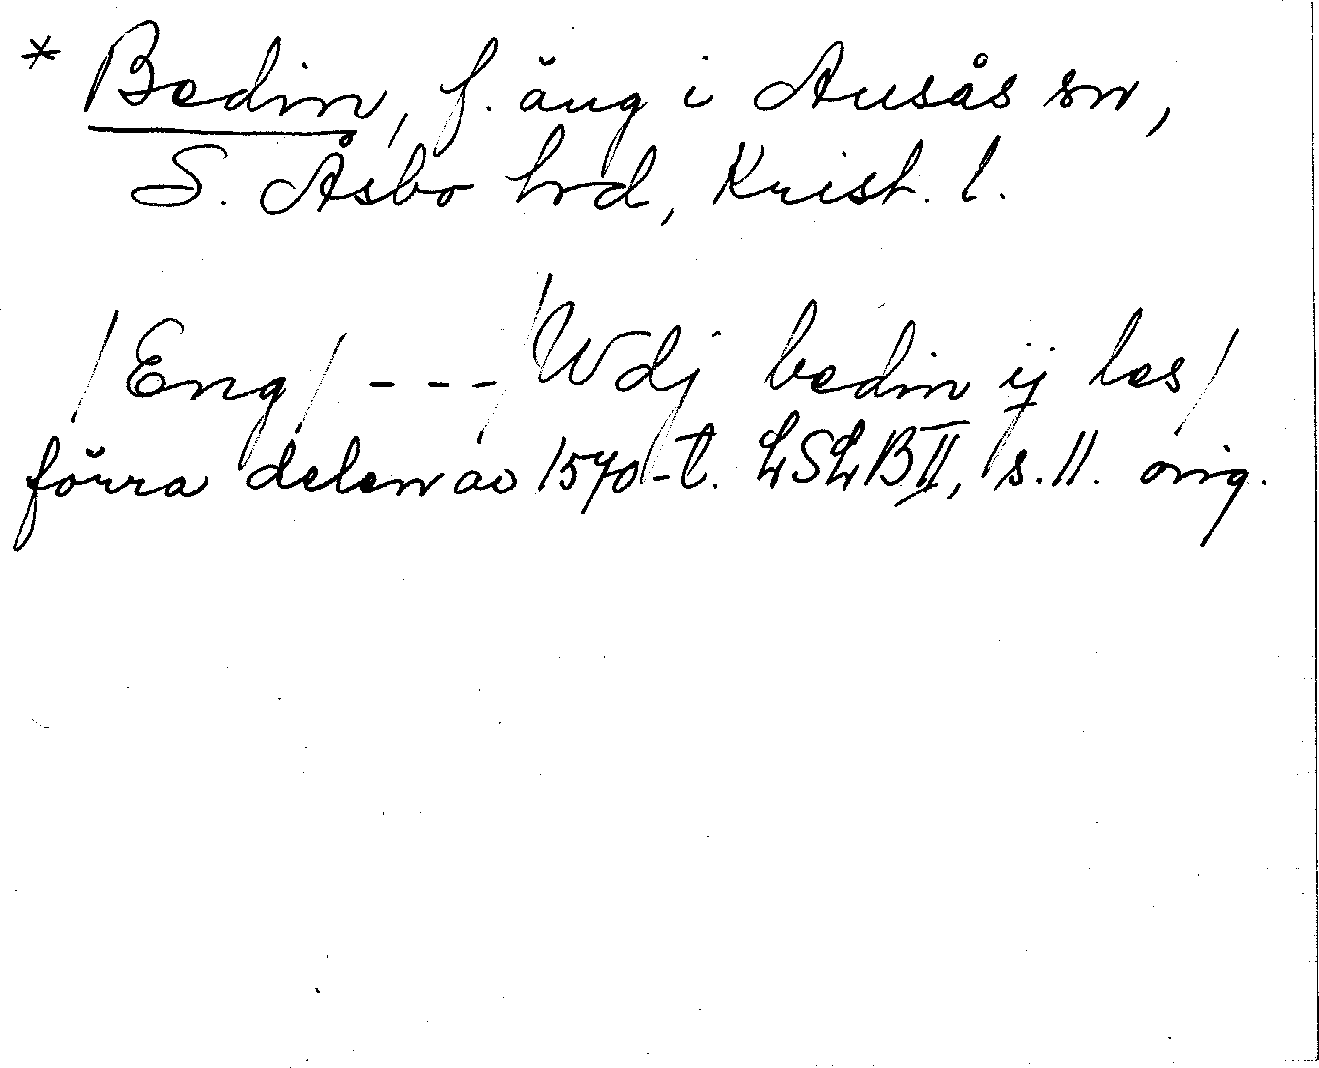 * Bedin, f. äng i Ausås sn,
S. Åsbo hrd, Krist. l.
/Eng/ --- /Wdj bedin ij les/
förra delen av 1570-t. LSLB II, s. 11. orig.